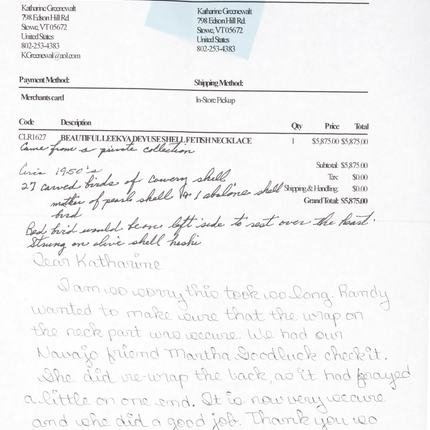 Katharine Greenewalt
Katharine Greenewalt
798 Edson Hill Rd.
798 Edson Hill Rd.
Stowe, VT 05672
Stowe, VT 05672
United States
United States
802-253-4383
802-253-4383
KGreenewalt@aol.com
Payment Method:
Shipping Method:
Merchants card
In-Store Pickup
Code Description Qty Price Total
CLR1627 BEAUTIFUL LEEKYA DEYUSE SHELL FETISH NECKLACE 1 $5,875.00 $5,875.00
Came from a private collection
Subtotal: $5,875.00
Circa 1950's
Tax: $0.00
27 carved birds of cowery shell
Shipping & Handling: $0.00
mother of pearls shell & 1 abalone shell
Grand Total: $5,875.00
bird
Red bird would be on left side to rest over the heart.
Strung on olive shell heshi
Dear Katharine
I am so sorry this took so long. Randy
wanted to make sure that the wrap on
the neck part was secure. We had our
Navajo friend Martha Goodluck check it.
She did re-wrap the back, as it had frayed
a little on one end. It is now very secure
and she did a good job. Thank you so